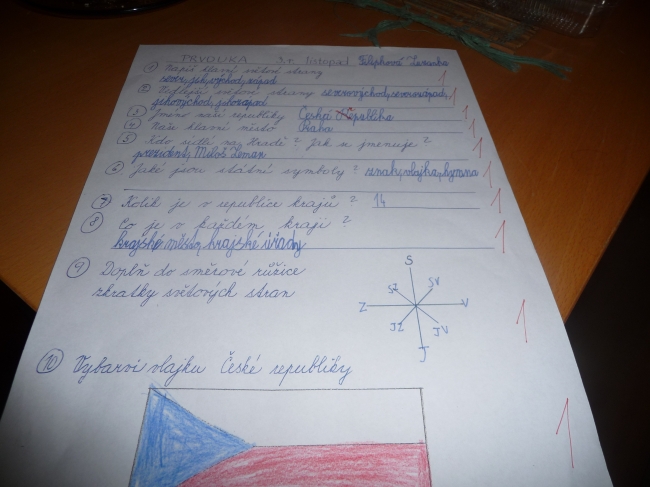 PRVOUKA 3.r. listopad Filipková Zuzanka
1 Napiš hlavní světové strany 1
sever, jih, východ, západ
2 Vedlejší světové strany severovýchod, severozápad, 1
jihovýchod, jihozápad
3 Jméno naší republiky Česká republika 1
4 Naše hlavní město Praha 1
5 Kdo sídlí na Hradě? Jak se jmenuje? 1
prezident, Miloš Zeman
6 Jaké jsou státní symboly? znak, vlajka, hymna 1
7 Kolik je v republice krajů? 14 1
8 Co je v každém kraji? 1
krajské město, krajské úřady
9 Doplň do směrové růžice
zkratky světových stran 1
S
SZ SV
Z V
JZ JV
J
10 Vybarvi vlajku České republiky
1